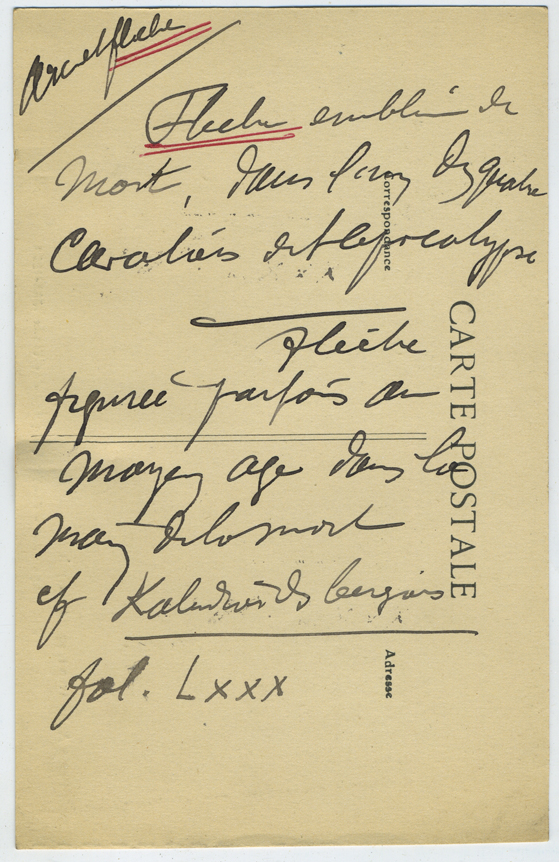 Arc et flèche
Flèche emblème de
Mort, dans l'un des quatre
Cavaliers de l'Apocalypse
Flèche
figurée parfois au
moyen age dans la
main de la mort
cf Kalendrier des bergers
fol. LXXX
Correspondance
CARTE POSTALE
Adresse